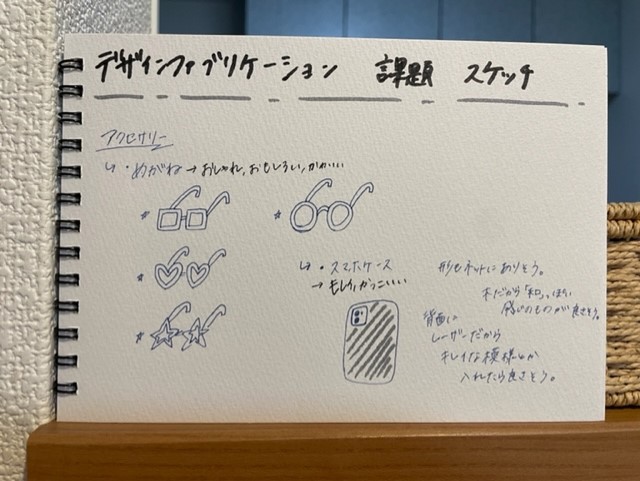 デザインファブリケーション 課題 スケッチ
アクセサリー
↳・めがね→おしゃれ,おもしろい,かわいい
↳・スマホケース
→もしくはかっこいい
形もネットにありそう。
木だから「和」っぽい
感じのものが良さそう。
背面に
レーザーだから
キレイな模様とか
入れたら良さそう。